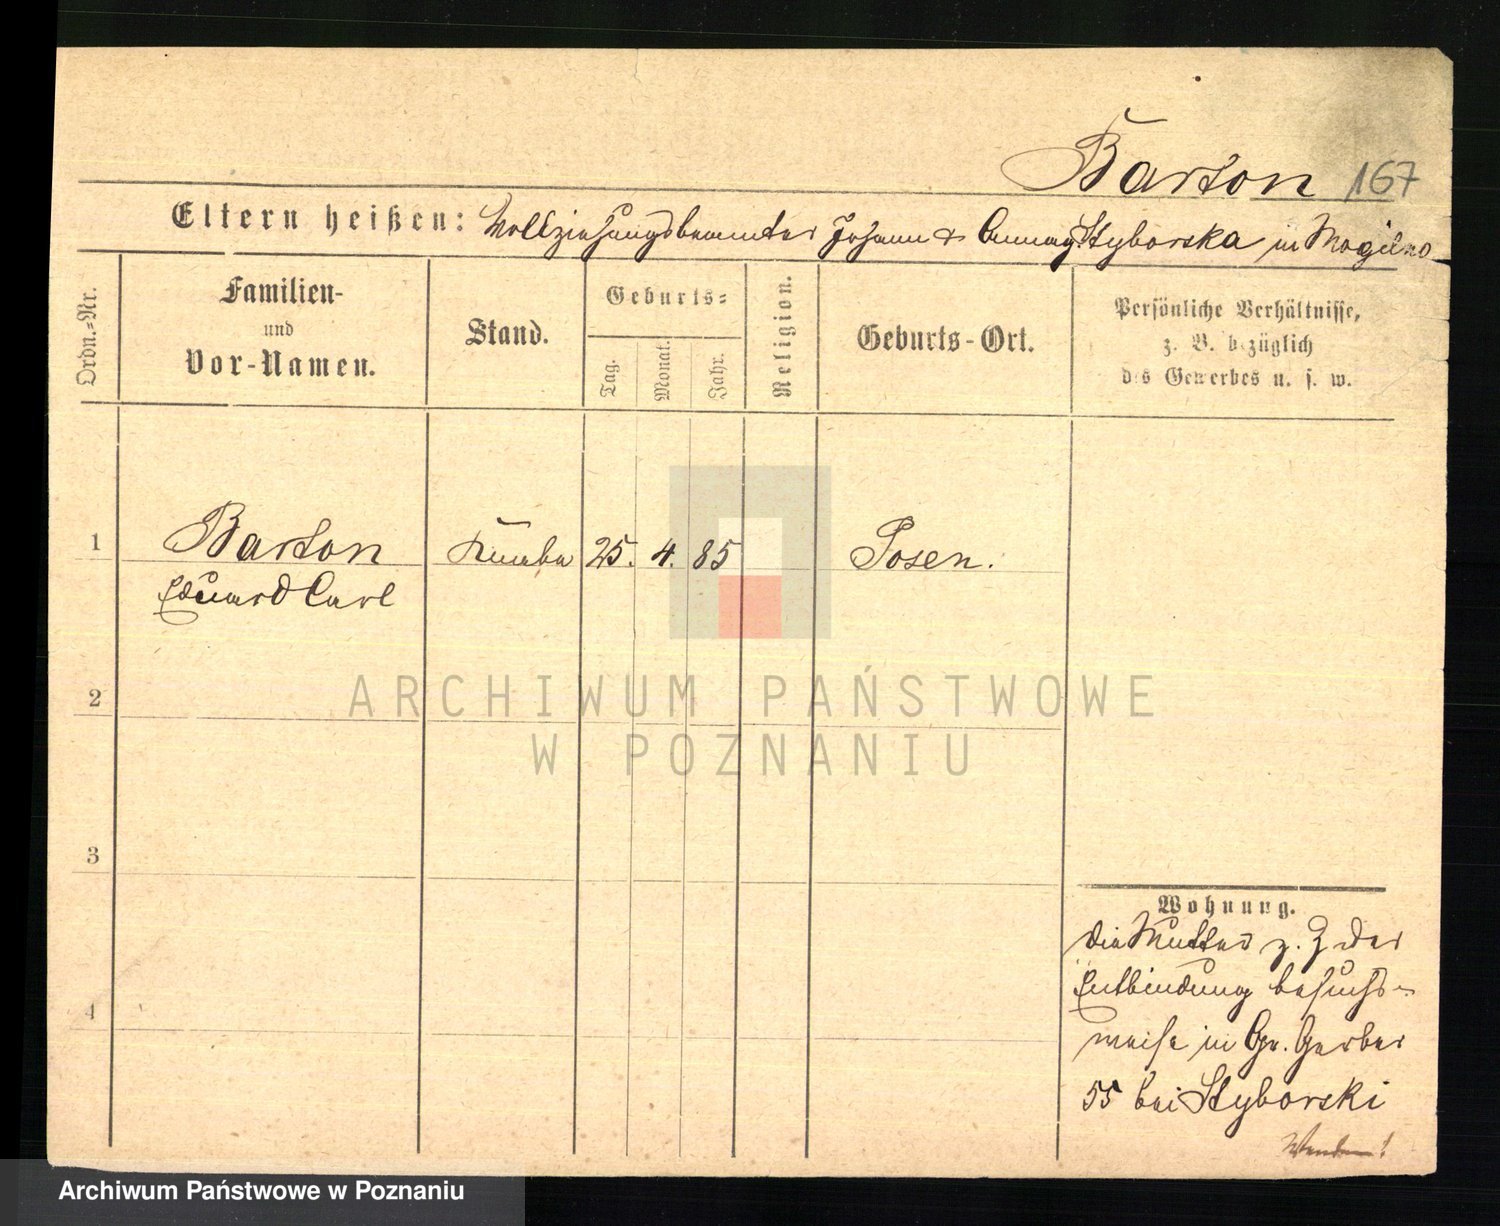 Barton 167
Eltern heißen: Vollziehungsbeamter Johann & Anna g. Styborska in Mogilno
Ordn.-Nr.
Familien-
und
Vor-Namen.
Stand.
Geburts-
Tag.
Monat.
Jahr.
Religion.
Geburts-Ort.
Persönliche Verhältnisse,
z. B. bezüglich
des Gewerbes u. s. w.
1 Barton Knabe 25. 4. 85 Posen.
Eduard Carl
2
ARCHIWUM PAŃSTWOWE
W POZNANIU
3
4
Wohnung.
Die Mutter z. Z der
Entbindung besuchs-
weise in Gr. Gerber
55 bei Styborski
Wenden!
Archiwum Państwowe w Poznaniu